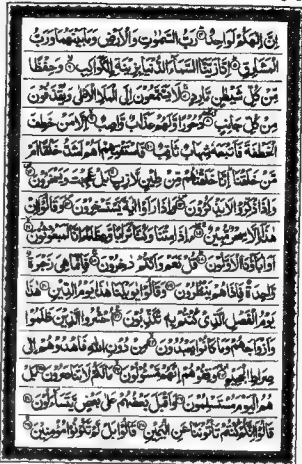 إِنَّ إِلَٰهَكُمْ لَوَاحِدٌ ۝٤ رَبُّ السَّمَٰوَٰتِ وَالْأَرْضِ وَمَا بَيْنَهُمَا وَرَبُّ
الْمَشَٰرِقِ ۝٥ إِنَّا زَيَّنَّا السَّمَآءَ الدُّنْيَا بِزِينَةٍ الْكَوَاكِبِ ۝٦ وَحِفْظًا
مِّن كُلِّ شَيْطَٰنٍ مَّارِدٍ ۝٧ لَّا يَسَّمَّعُونَ إِلَى الْمَلَإِ الْأَعْلَىٰ وَيُقْذَفُونَ
مِن كُلِّ جَانِبٍ ۝٨ دُحُورًا وَلَهُمْ عَذَابٌ وَاصِبٌ ۝٩ إِلَّا مَنْ خَطِفَ
الْخَطْفَةَ فَأَتْبَعَهُ شِهَابٌ ثَاقِبٌ ۝١٠ فَاسْتَفْتِهِمْ أَهُمْ أَشَدُّ خَلْقًا أَم
مَّنْ خَلَقْنَا إِنَّا خَلَقْنَٰهُم مِّن طِينٍ لَّازِبٍ ۝١١ بَلْ عَجِبْتَ وَيَسْخَرُونَ ۝١٢
وَإِذَا ذُكِّرُوا لَا يَذْكُرُونَ ۝١٣ وَإِذَا رَأَوْا ءَايَةً يَسْتَسْخِرُونَ ۝١٤ وَقَالُوا إِنْ
هَٰذَا إِلَّا سِحْرٌ مُّبِينٌ ۝١٥ أَءِذَا مِتْنَا وَكُنَّا تُرَابًا وَعِظَٰمًا أَءِنَّا لَمَبْعُوثُونَ ۝١٦
أَوَءَابَآؤُنَا الْأَوَّلُونَ ۝١٧ قُلْ نَعَمْ وَأَنتُمْ دَٰخِرُونَ ۝١٨ فَإِنَّمَا هِيَ زَجْرَةٌ
وَٰحِدَةٌ فَإِذَا هُمْ يَنظُرُونَ ۝١٩ وَقَالُوا يَٰوَيْلَنَا هَٰذَا يَوْمُ الدِّينِ ۝٢٠ هَٰذَا
يَوْمُ الْفَصْلِ الَّذِي كُنتُم بِهِ تُكَذِّبُونَ ۝٢١ احْشُرُوا الَّذِينَ ظَلَمُوا
وَأَزْوَٰجَهُمْ وَمَا كَانُوا يَعْبُدُونَ ۝٢٢ مِن دُونِ اللَّهِ فَاهْدُوهُمْ إِلَىٰ
صِرَٰطِ الْجَحِيمِ ۝٢٣ وَقِفُوهُمْ إِنَّهُم مَّسْـُٔولُونَ ۝٢٤ مَا لَكُمْ لَا تَنَاصَرُونَ ۝٢٥ بَلْ
هُمُ الْيَوْمَ مُسْتَسْلِمُونَ ۝٢٦ وَأَقْبَلَ بَعْضُهُمْ عَلَىٰ بَعْضٍ يَتَسَآءَلُونَ ۝٢٧
قَالُوا إِنَّكُمْ كُنتُمْ تَأْتُونَنَا عَنِ الْيَمِينِ ۝٢٨ قَالُوا بَل لَّمْ تَكُونُوا مُؤْمِنِينَ ۝٢٩